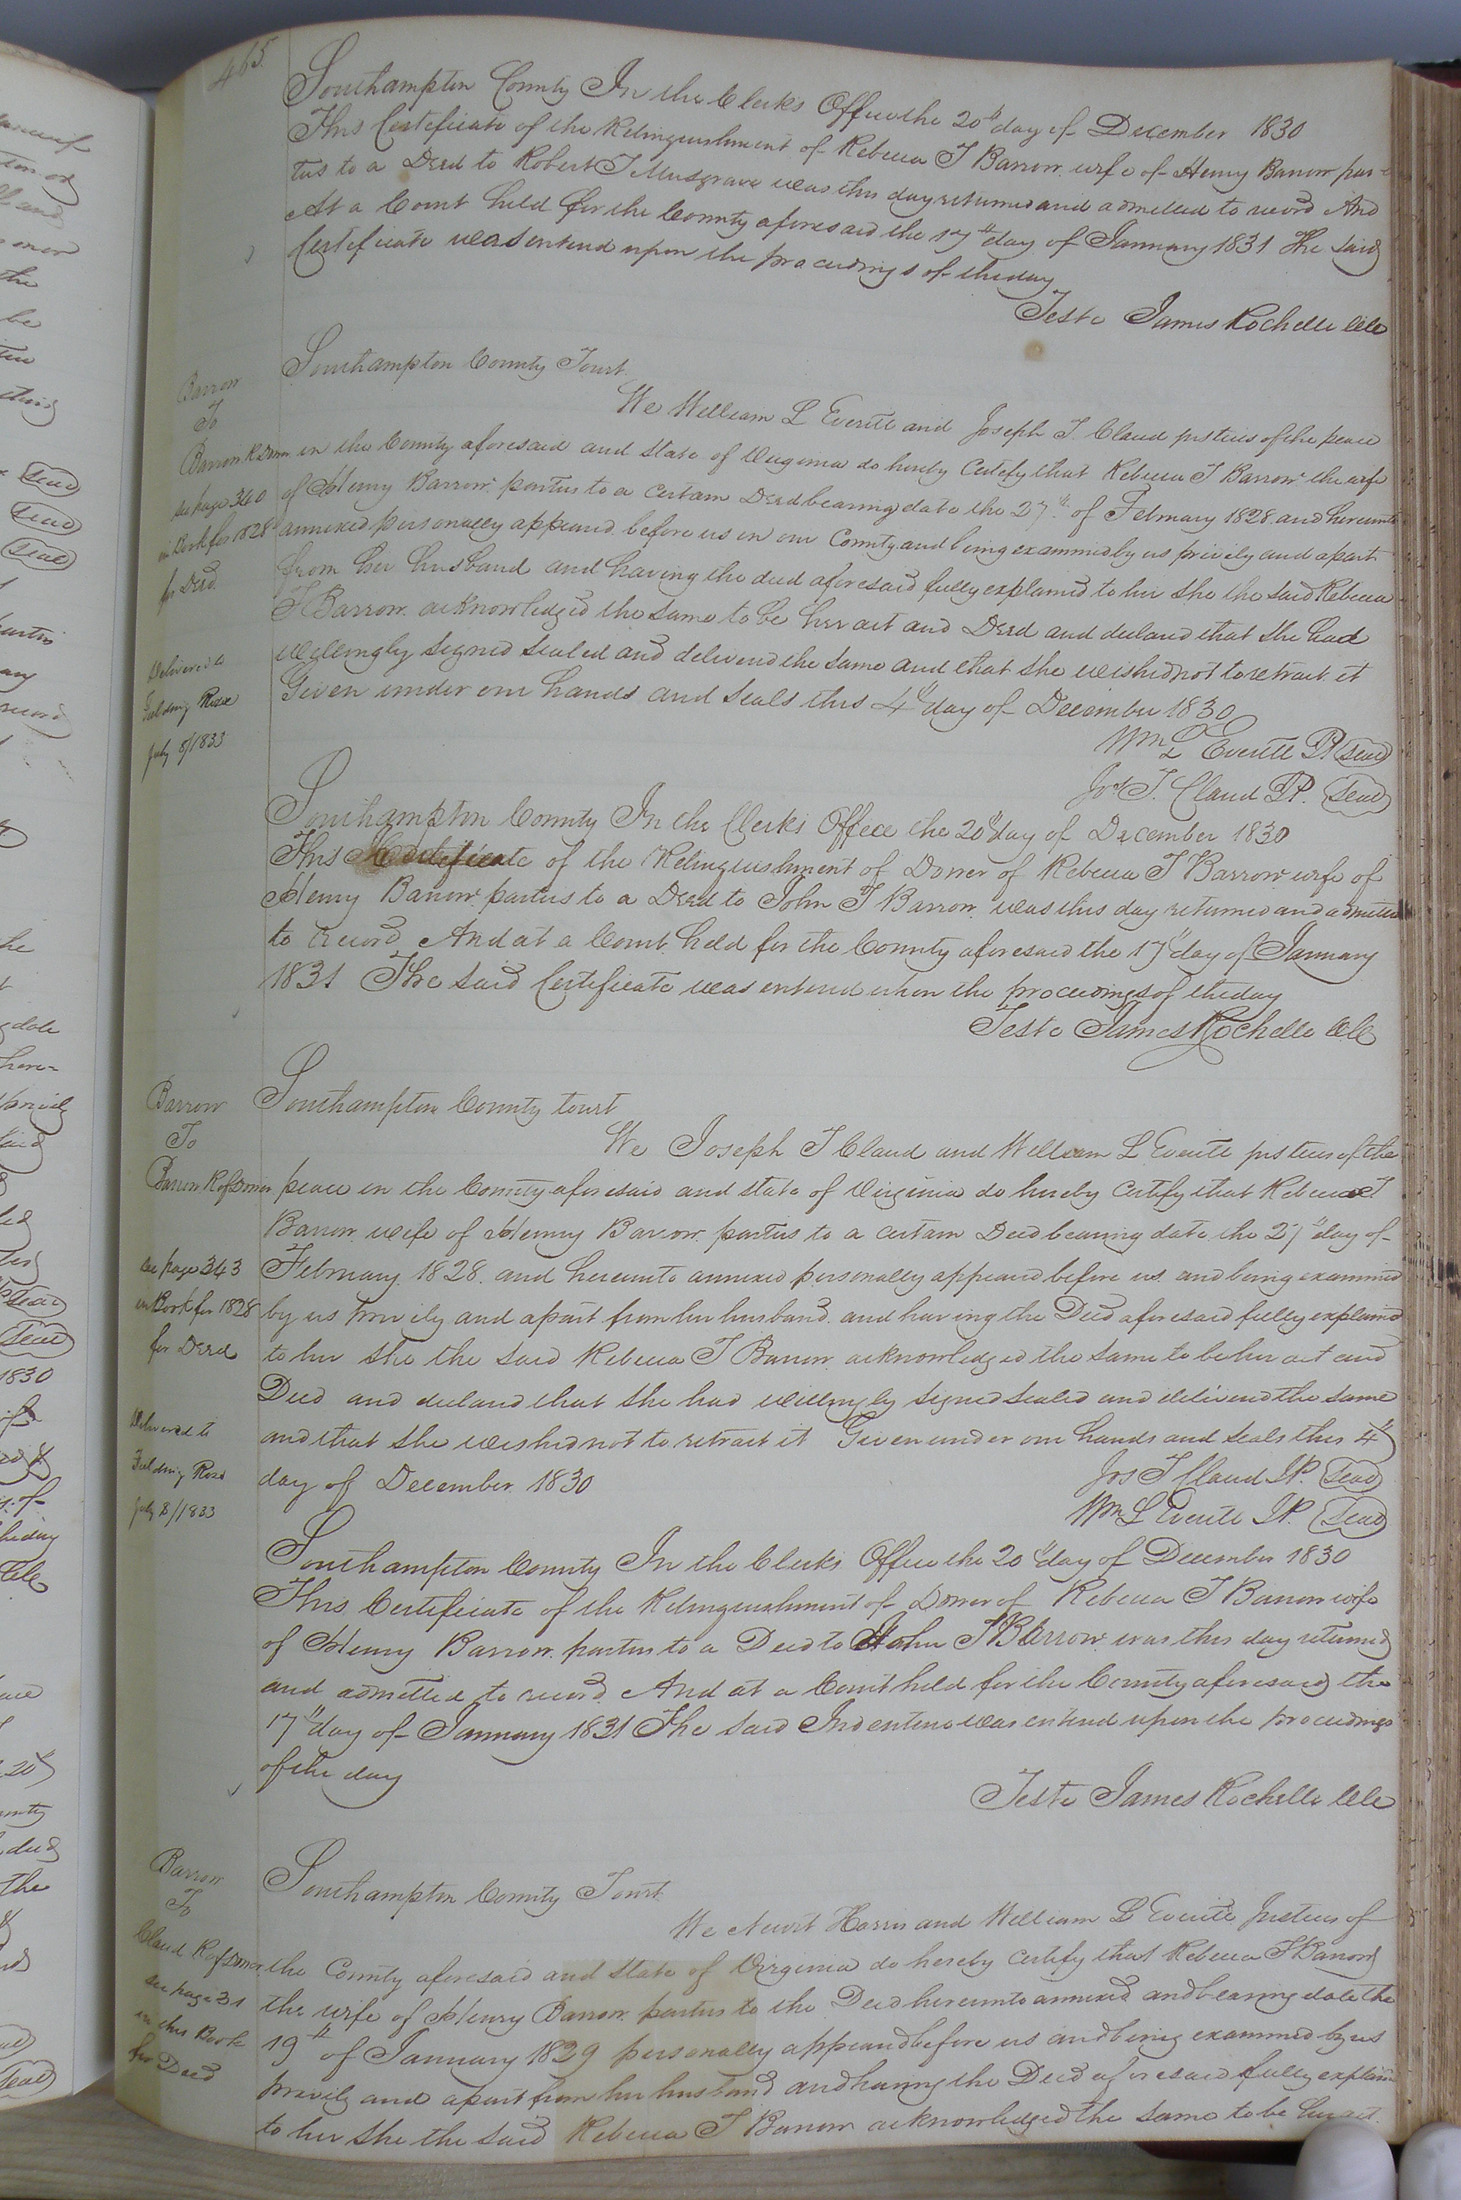 465.
Southampton County In the Clerks Office the 20th day of December 1830
This Certificate of the Relinquishment of Rebecca T Barrow wife of Henry Barrow par-
ties to a Deed to Robert T Musgrave was this day returned and admitted to record And
At a Court held for the County aforesaid the 17th day of January 1831 The said
Certificate was entered upon the proceedings of the day
Teste James Rochelle Clk
Barrow
To
Barrow R Dower
see page 340
in Book for 1828
for Deed
Delivered to
Fielding Rose
July 8/1833
Southampton County Towit
We William L Everett and Joseph T Claud justices of the peace
in the County aforesaid and State of Virginia do hereby Certify that Rebecca T Barrow the wife
of Henry Barrow parties to a certain Deed bearing date the 27th of February 1828 and hereunto
annexed personally appeared before us in our County and being examined by us privily and apart
from her husband and having the deed aforesaid fully explained to her she the said Rebecca
T Barrow acknowledged the same to be her act and Deed and declared that she had
willingly signed sealed and delivered the same and that she wished not to retract it
Given under our hands and seals this 4th day of December 1830
Wm L Everett JP (Seal)
Jos T. Claud JP. (Seal)
Southampton County In the Clerks Office the 20th day of December 1830
This Certificate of the Relinquishment of Dower of Rebecca T Barrow wife of
Henry Barrow parties to a Deed to John T Barrow was this day returned and admitted
to record And at a Court held for the County aforesaid the 17th day of January
1831 The said Certificate was entered upon the proceedings of the day
Teste James Rochelle Clk
Barrow
To
Barrow R of Dower
see page 343
in Book for 1828
for Deed
Delivered to
Fielding Rose
July 8/1833
Southampton County towit
We Joseph T Claud and William L Everett justices of the
peace in the County aforesaid and State of Virginia do hereby Certify that Rebecca T
Barrow wife of Henry Barrow parties to a certain Deed bearing date the 27th day of
February 1828 and hereunto annexed personally appeared before us and being examined
by us privily and apart from her husband and having the Deed aforesaid fully explained
to her she the said Rebecca T Barrow acknowledged the same to be her act and
Deed and declared that she had willingly signed sealed and delivered the same
and that she wished not to retract it Given under our hands and seals this 4th
day of December 1830
Jos T Claud JP. (Seal)
Wm L Everett JP. (Seal)
Southampton County In the Clerks Office the 20th day of December 1830
This Certificate of the Relinquishment of Dower of Rebecca T Barrow wife
of Henry Barrow parties to a Deed to John T Barrow was this day returned
and admitted to record And at a Court held for the County aforesaid the
17th day of January 1831 The said Indenture was entered upon the proceedings
of the day
Teste James Rochelle Clk
Barrow
To
Claud R of Dower
see page 31
in this Book
for Deed
Southampton County Towit
We Newit Harris and William L Everett Justices of
the County aforesaid and State of Virginia do hereby Certify that Rebecca T Barrow
the wife of Henry Barrow parties to the Deed hereunto annexed and bearing date the
19th of January 1829 personally appeared before us and being examined by us
privily and apart from her husband and having the Deed aforesaid fully explained
to her she the said Rebecca T Barrow acknowledged the same to be her act